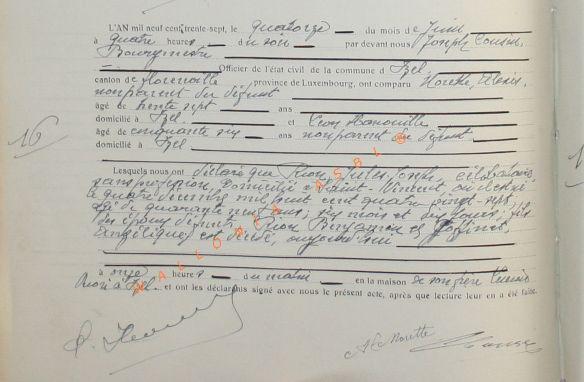 L'AN mil neuf cent trente-sept, le quatorze du mois de Juin
à quatre heures du soir par devant nous Joseph Cousin,
Bourgmestre
Officier de l'état civil de la commune d' Izel
canton de Florenville, province de Luxembourg, ont comparu Alexis,
nonparent du défunt
âgé de trente sept ans
domicilié à Izel et Léon
âgé de cinquante six ans nonparent du défunt
domicilié à Izel
16
Lesquels nous ont déclaré que Pion, Jules, Joseph, célibataire,
sans profession, domicilié à Saint-Vincent, où il est né
le quatre décembre mil huit cent quatre vingt-sept,
âgé de quarante neuf ans, six mois et dix jours, fils
des époux défunts, Pion Benjamin et
Angélique, est décédé, aujourd'hui
WALLONIA ASBL ©
à onze heures du matin en la maison de son frère
Pion à Izel, et ont les déclarants signé avec nous le présent acte, après que lecture leur en a été faite.